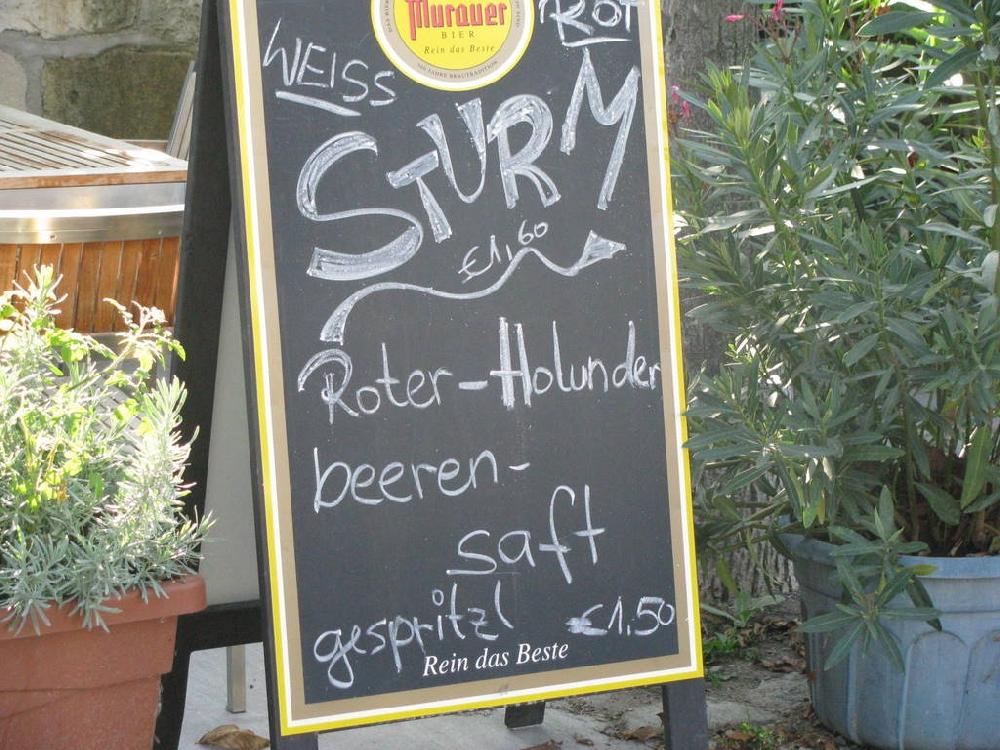 Murauer
BIER
Rein das Beste
WEISS
ROT
STURM
€1,60
Roter-Holunder
beeren-
saft
gespritzt
€1,50
Rein das Beste